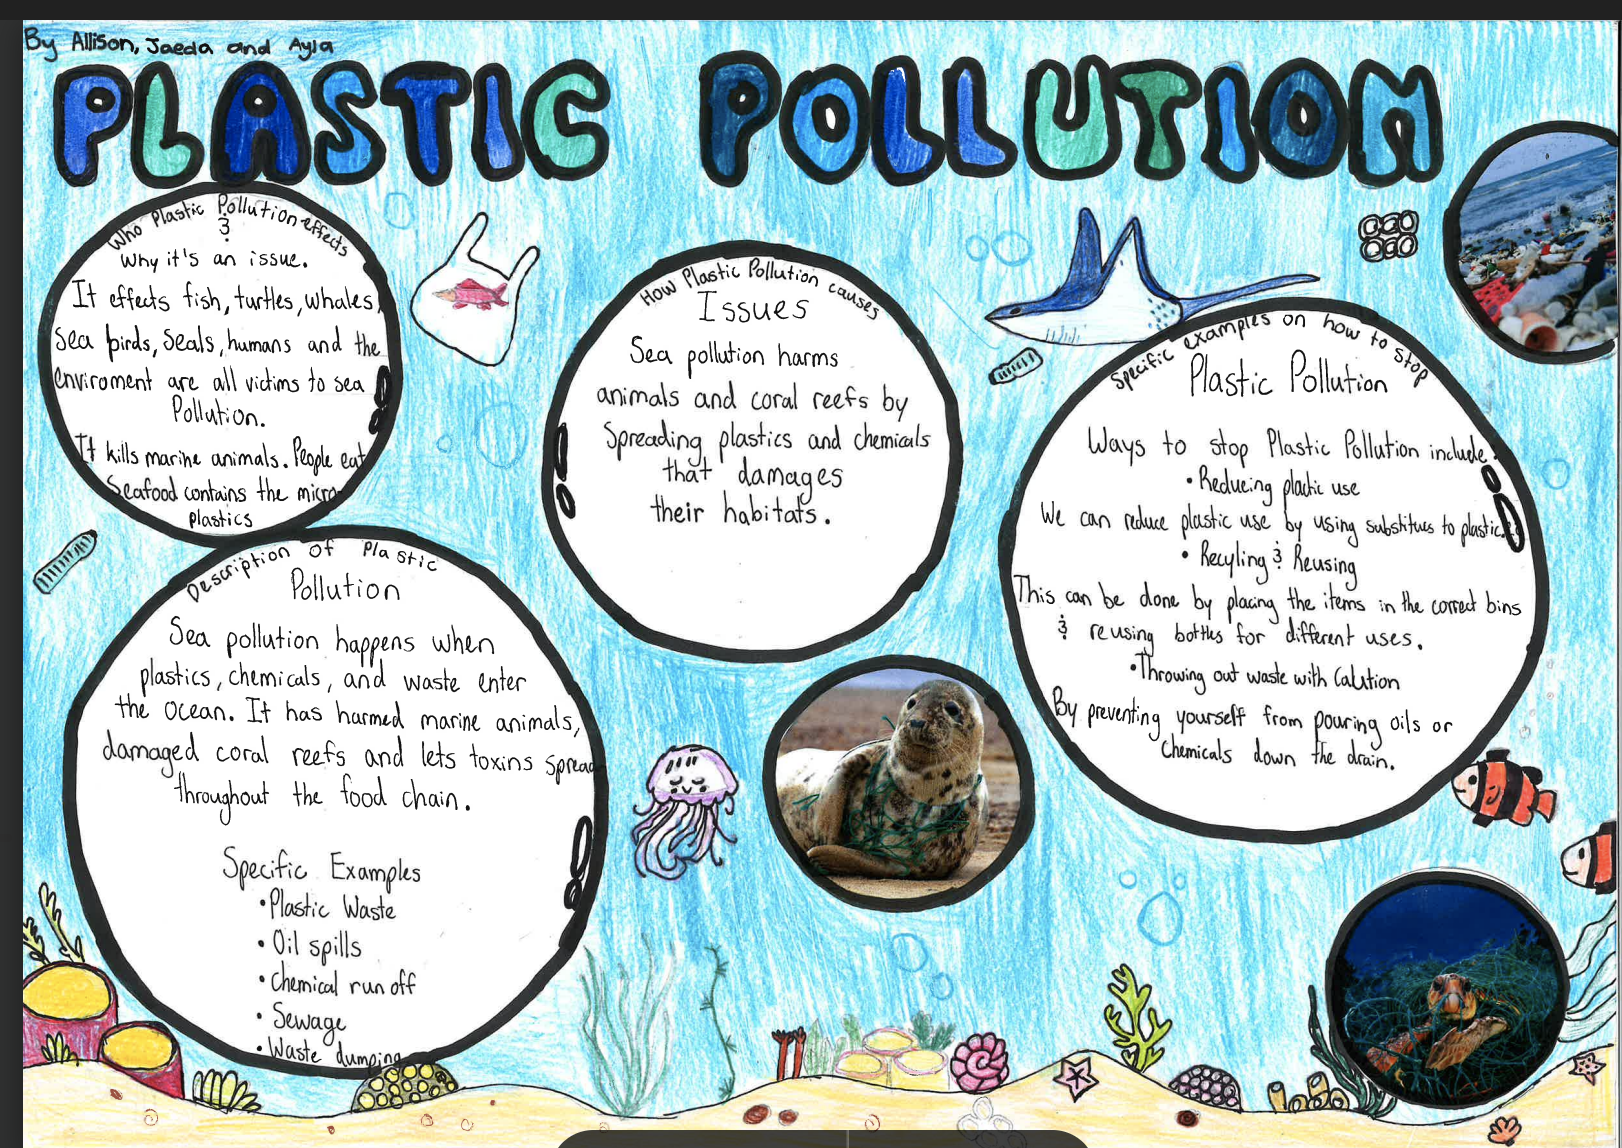 By Allison, Jaeda and Ayla
PLASTIC POLLUTION
Who Plastic Pollution effects
&
Why it's an issue.
It effects fish, turtles, whales,
Sea birds, Seals, humans and the
enviroment are all victims to sea
Pollution.
It kills marine animals. People eat
Seafood contains the micro-
plastics
Description of Plastic
Pollution
Sea pollution happens when
plastics, chemicals, and waste enter
the ocean. It has harmed marine animals,
damaged coral reefs and lets toxins spread
throughout the food chain.
Specific Examples
•Plastic Waste
•Oil spills
•Chemical run off
•Sewage
•Waste dumping
How Plastic Pollution causes
Issues
Sea pollution harms
animals and coral reefs by
Spreading plastics and chemicals
that damages
their habitats.
Specific examples on how to stop
Plastic Pollution
Ways to stop Plastic Pollution include
•Reducing plactic use
We can reduce plastic use by using substitues to plastic.
•Recyling & Reusing
This can be done by placing the items in the correct bins
& reusing bottles for different uses.
•Throwing out waste with Caution
By preventing yourself from pouring oils or
Chemicals down the drain.